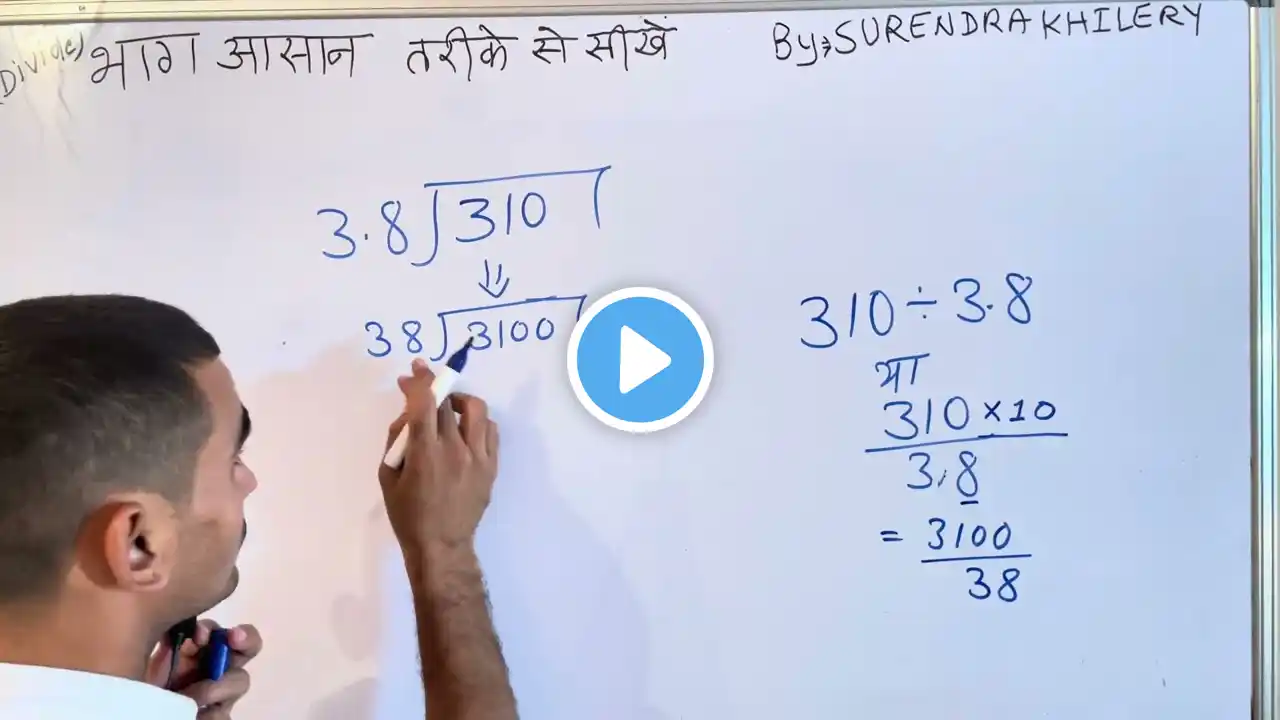 (Divide) भाग आसान तरीके से सीखें By:SURENDRA KHILERY
3.8)310
38)3100
310÷3.8
या
310×10
3.8
= 3100
38